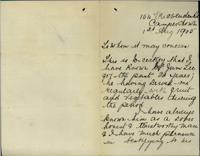 Camperdown
1st Aug 1905
To whom it may concern
This is to certify that I
have known Mr Jum Lee
for the past 20 years
he having served me
regularly with fruit
and vegetables during
the period
I have always
known him as a sober
honest & trustworthy man
& I have much pleasure
in testifying to his